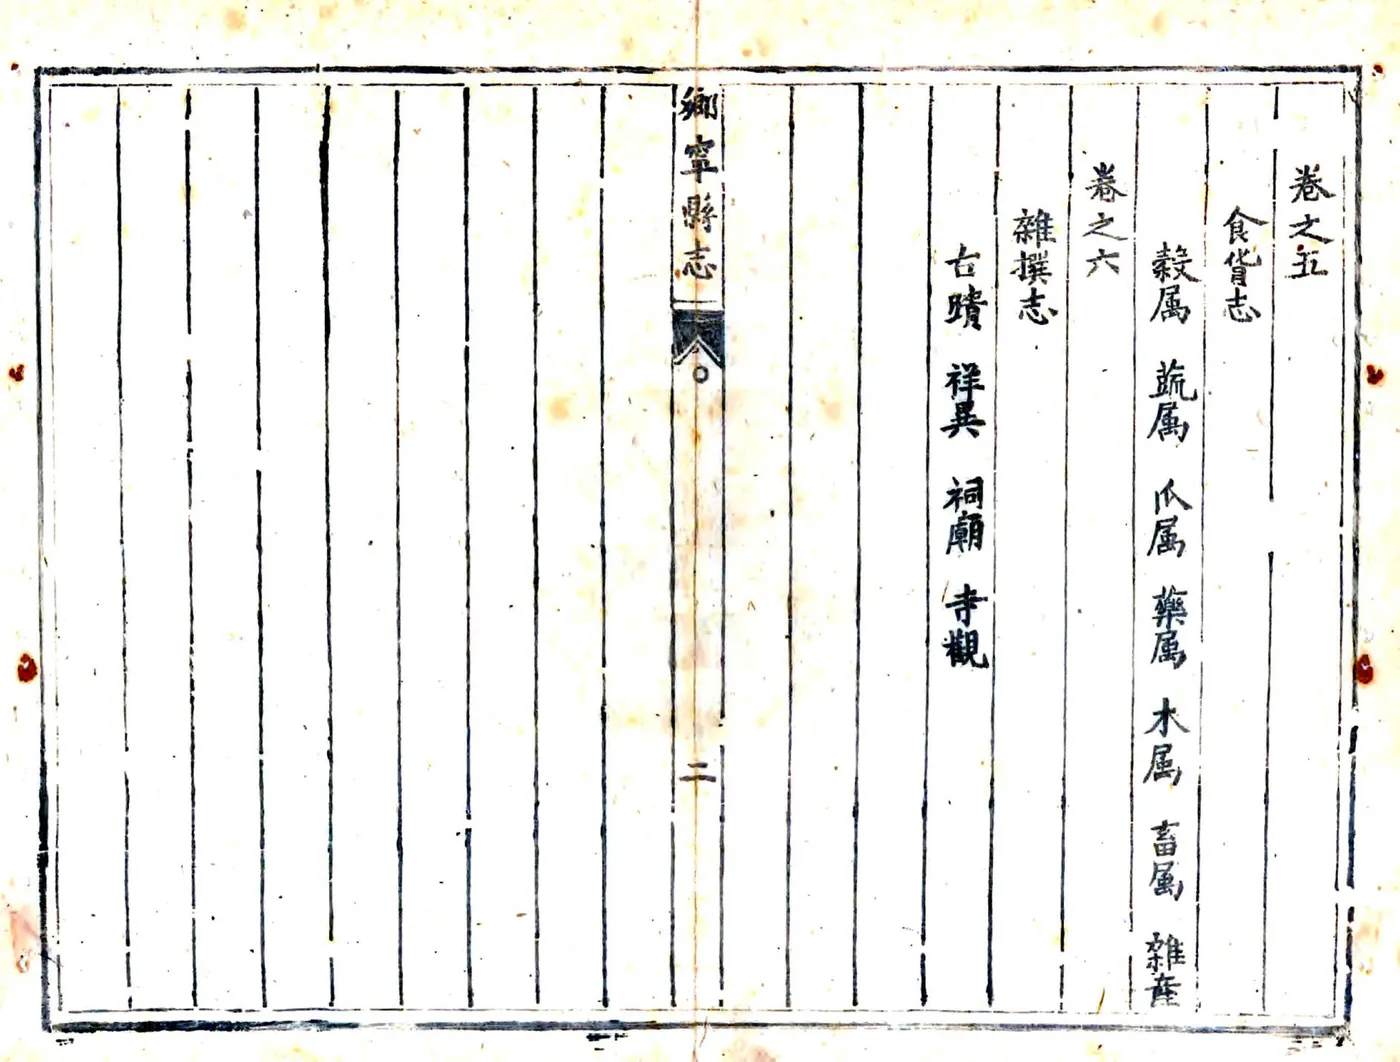 卷之五
食貨志
穀属 蔬属 瓜属 藥属 木属 畜属 雜產
卷之六
雜撰志
古蹟 祥異 祠廟 寺觀
鄉寧縣志 二